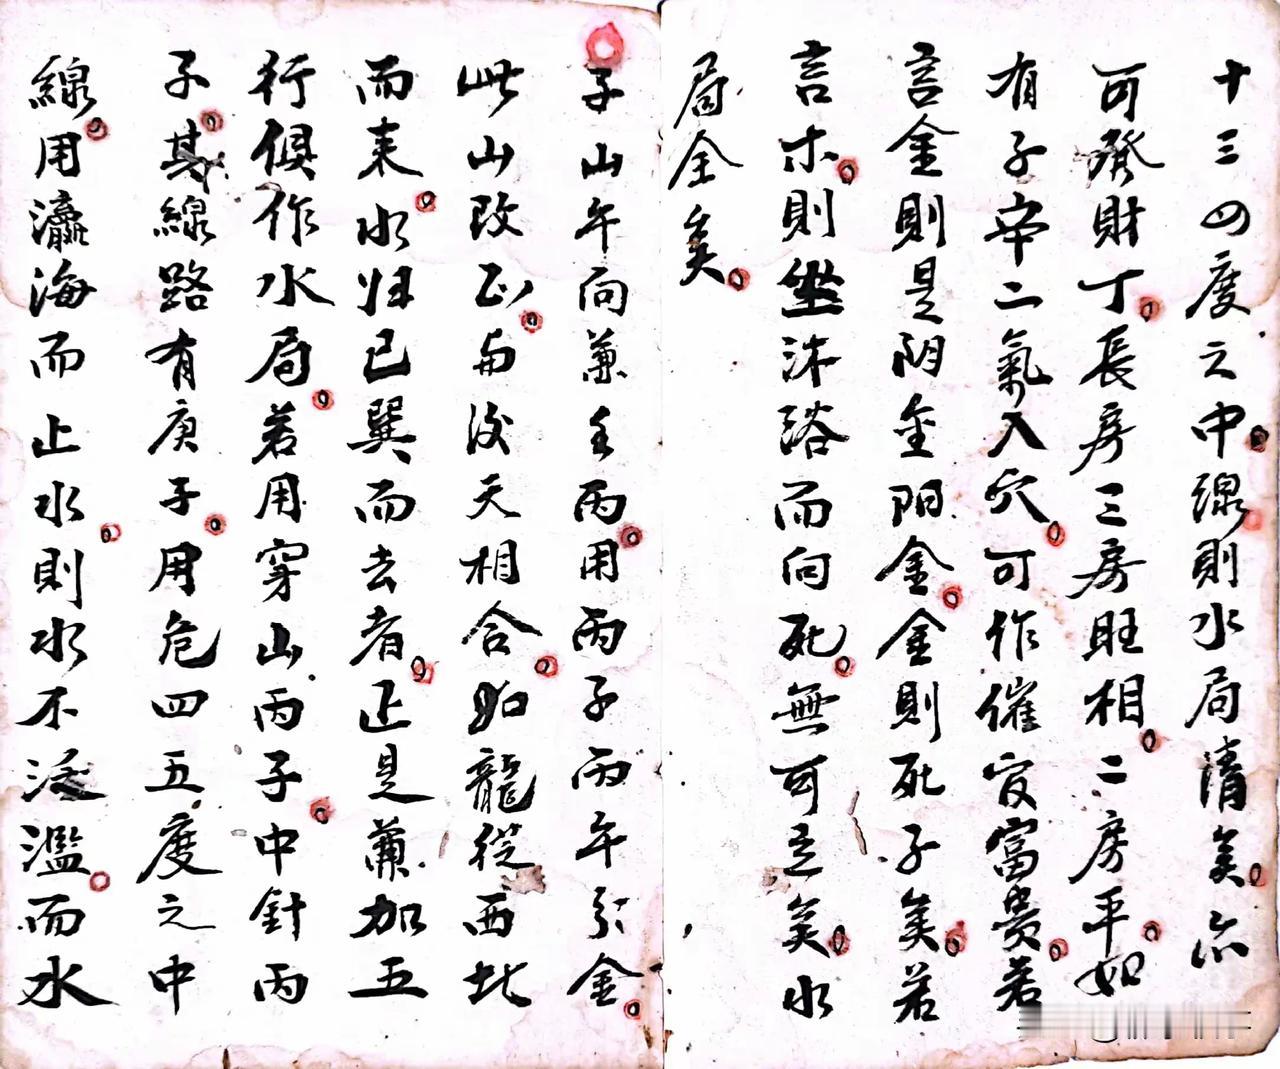 十三四度之中線則水局清矣亦
可發財丁長房三房旺相二房平如
有子帝二氣入穴可作催官富贵若
言金則是阴金阳金金則死子矣若
言木則坐沐浴而向死無可立矣水
局全矣
子山午向兼壬丙用丙子丙午分金
此山改正与後天相合如龍從西北
而来水归巳巽而去者正是兼加五
行俱作水局若用穿山丙子中針丙
子其線路有庚子用危四五度之中
線用瀛海而止水則水不泛濫而水